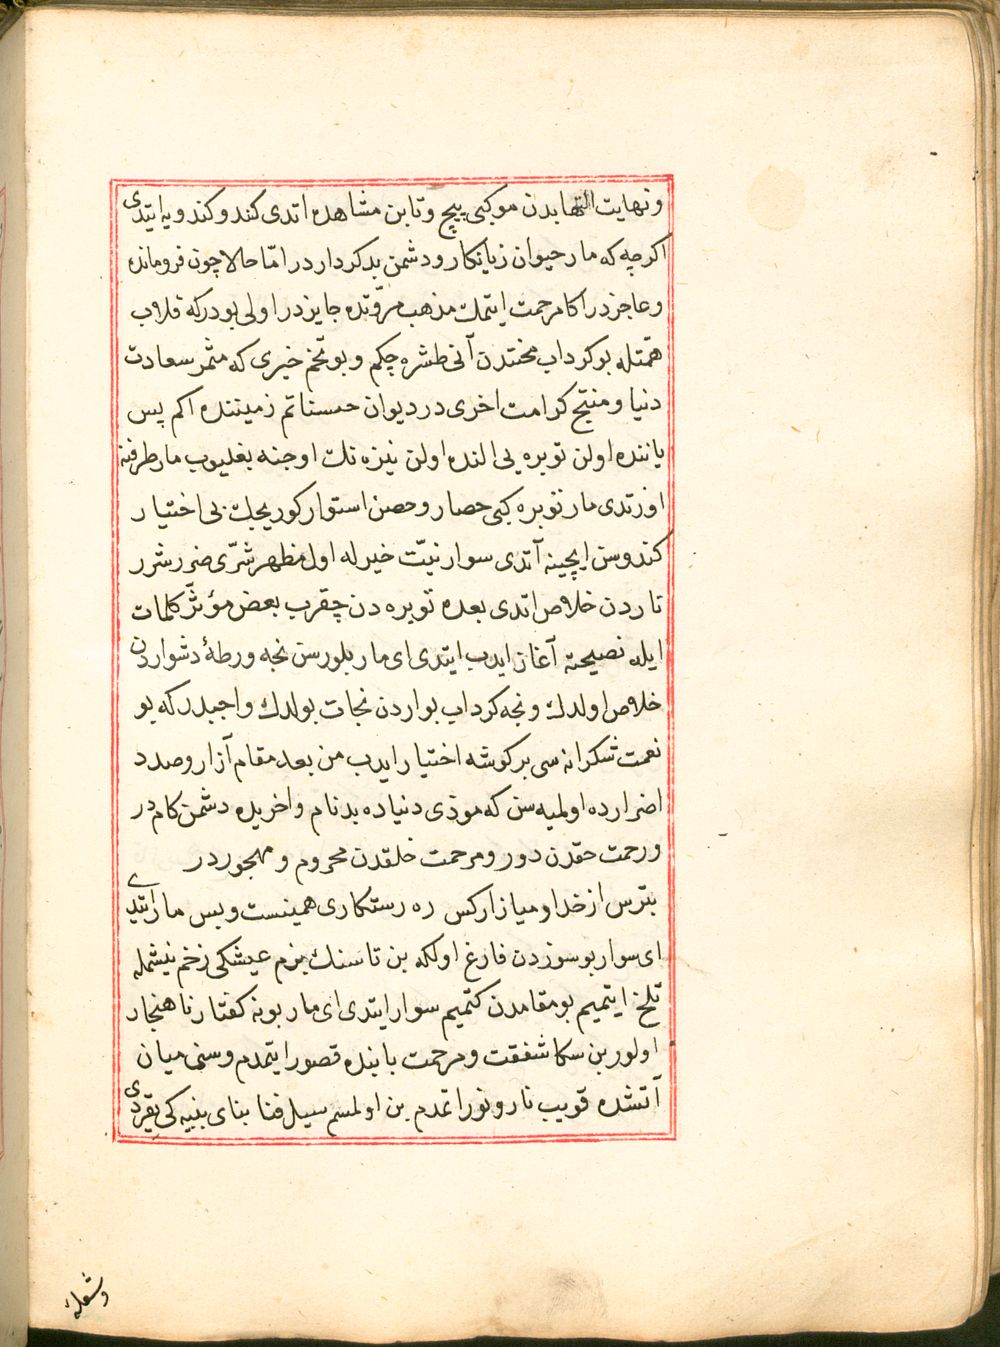 ونهایت التهابدن موكبی پیچ وتابن مشاهده اتدی كندو كندویه ایتدی
اكرچه كه مار حیوان زیانكار ودشمن بدكرداردر امّا حالا چون فرومانده
وعاجزدر اكا مرحمت ایتمك مذهب مروّتده جایزدر اولی بودركه قلاب
همّتله بو كرداب محنتدن آنی طشره چكم و بو تخم خیری كه مثمر سعادت
دنیا و منتج كرامت اخری در دیوان حسناتم زمیننده اكم پس
یاننده اولن توبره یی النده اولن نیزه نك اوجنه بغلیوب مار طرفنه
اوزتدی مار توبره كبی حصار وحصن استوار كوریجك بی اختیار
كندوسن ایچینه آتدی سوار نیّت خیرله اول مظهر شرّی ضرر شرر
ناردن خلاص اتدی بعده توبره دن چقرب بعض مؤثّر كلمات
ایله نصیحته آغاز ایدب ایتدی ای مار بلورسن نجه ورطهٔ دشواردن
خلاص اولدك و نجه كرداب بواردن نجات بولدك واجبدركه بو
نعمت شكرانه سی بر كوشه اختیار ایدب من بعد مقام آزار وصدد
اضرارده اولمیه سن كه موذی دنیاده بدنام واخریده دشمن كام در
ورحمت حقدن دور ومرحمت خلقدن محروم و مهجوردر
بترس از خدا و میازار كس ره رستكاری همینست وبس مار ایتدی
ای سوار بو سوزدن فارغ اولكه بن تا سنك بزم عیشكی زخم نیشمله
تلخ ایتمیم بو مقامدن كتمیم سوار ایتدی ای مار بو نه كفتار ناهنجار
اولور بن سكا شفقت و مرحمت بابنده قصور ایتمدم وسنی میان
آتشده قویب نار ونور اتمدم بن اولمسم سیل فنا بنای بنیه كی یقردی
وشعلهٔ